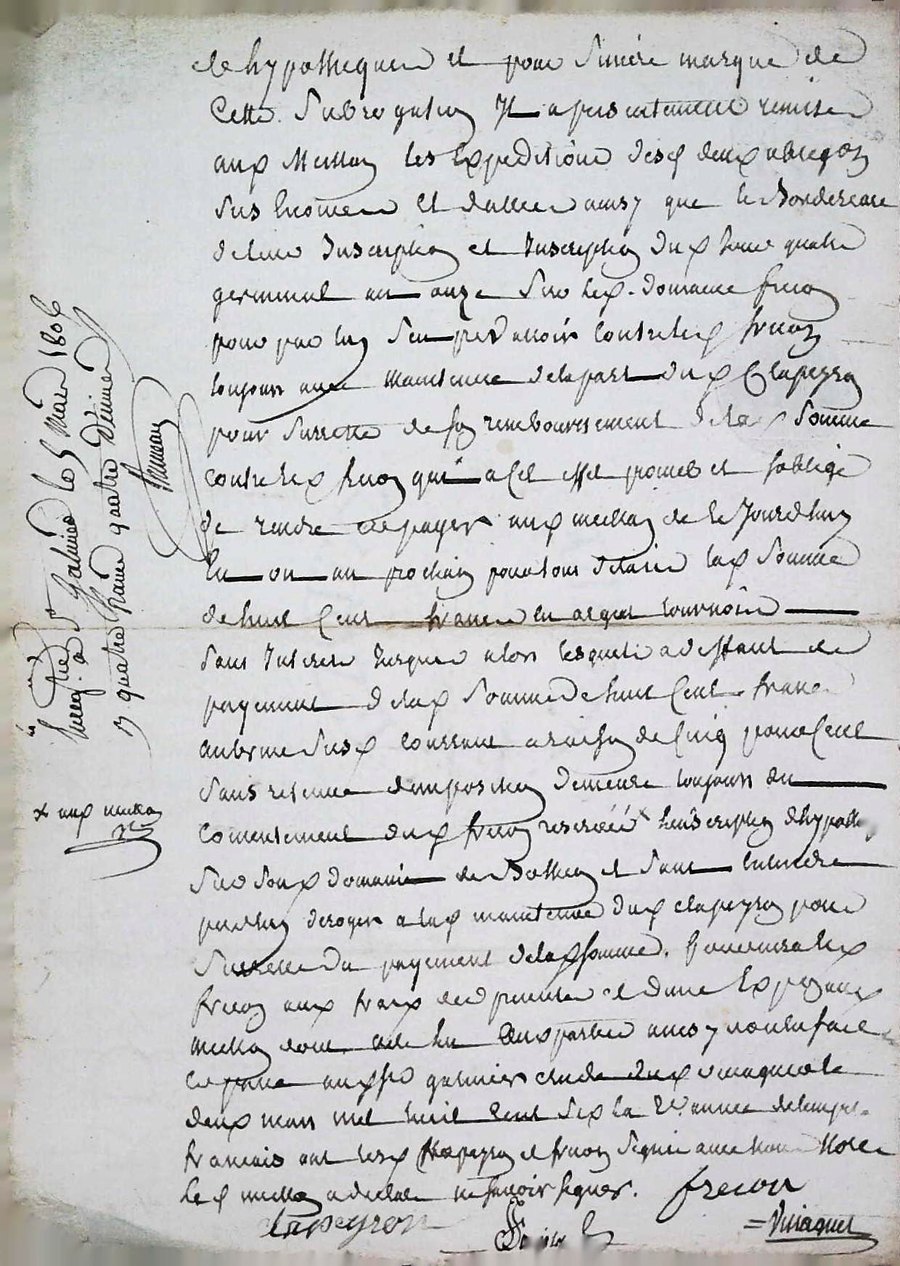 de hypotheque et pour sincère marque de
Cette Subrogation Il a presentement remise
aux Meillon les Expeditions desd deux obligaon
sus Enoncee et dattee ainsy que le Bordereau
de leur Inscription et Inscription dud jour quatre
germinal an onze Sur led. domaine frecon
pour par luy Sen prevalloir Contre led frecon
toujours avec maintenue de la part dud Clapeyron
pour Surette de son remboursement de lad Somme
contre led frecon qui a Cet effet promet et soblige
de rendre et payer aud meillon de ce Jourdhuy
En un an prochain pour tous delais lad Somme
de huit Cent francs en argent tournois
Sans Interets Jusques alors lesquels a deffaut de
payement de lad Somme de huit Cent francs
au terme susd courront a raison de Cinq pour Cent
Sans retenue dimposition demeure toujours du
consentement dud frecon reservée x Linscription dhypoth
Sur Soud domaine de Bothéon et Sans Entendre
par luy deroger a lad maintenue dud clapeyron pour
Surette du payement de lad somme. fournira led
frecon aux fraix des presentes et dune Expeon aud
meillon dont acte lu aux parties ainsy voulu fait
et passé audt St galmier etude dud viriaquet le
deux mars mil huit Cent Six la 2e année de lempire
francais ont lesd Clapeyron et frecon Signé avec nous Notre
Led meillon a declaré ne savoir signer. frecon
Clapeyron
= Viriaquet
Enreg. a St Galmier le 5 Mars 1806
quatre francs quatre Décimes
x aud meillon